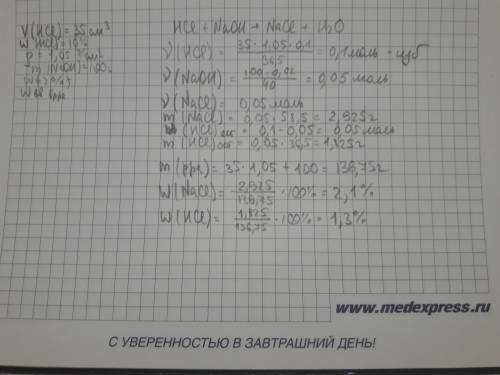 V(HCl) = 35 см³
W(HCl) = 10%
ρ = 1,05 г/см³
m(NaOH) = 100г
HCl + NaOH → NaCl + H₂O
ν(HCl) = 35 · 1,05 · 0,1 / 36,5 = 0,1 моль - изб
ν(NaOH) = 100 · 0,02 / 40 = 0,05 моль
ν(NaCl) = 0,05 моль
m(NaCl) = 0,05 · 58,5 = 2,925г
(HCl)ост = 0,1 - 0,05 = 0,05 моль
m(HCl)ост = 0,05 · 36,5 = 1,825г
m(ppa) = 35 · 1,05 + 100 = 136,75г
W(NaCl) = 2,925 / 136,75 · 100% = 2,1%
W(HCl) = 1,825 / 136,75 · 100% = 1,3%
www.medexpress.ru
С УВЕРЕННОСТЬЮ В ЗАВТРАШНИЙ ДЕНЬ!